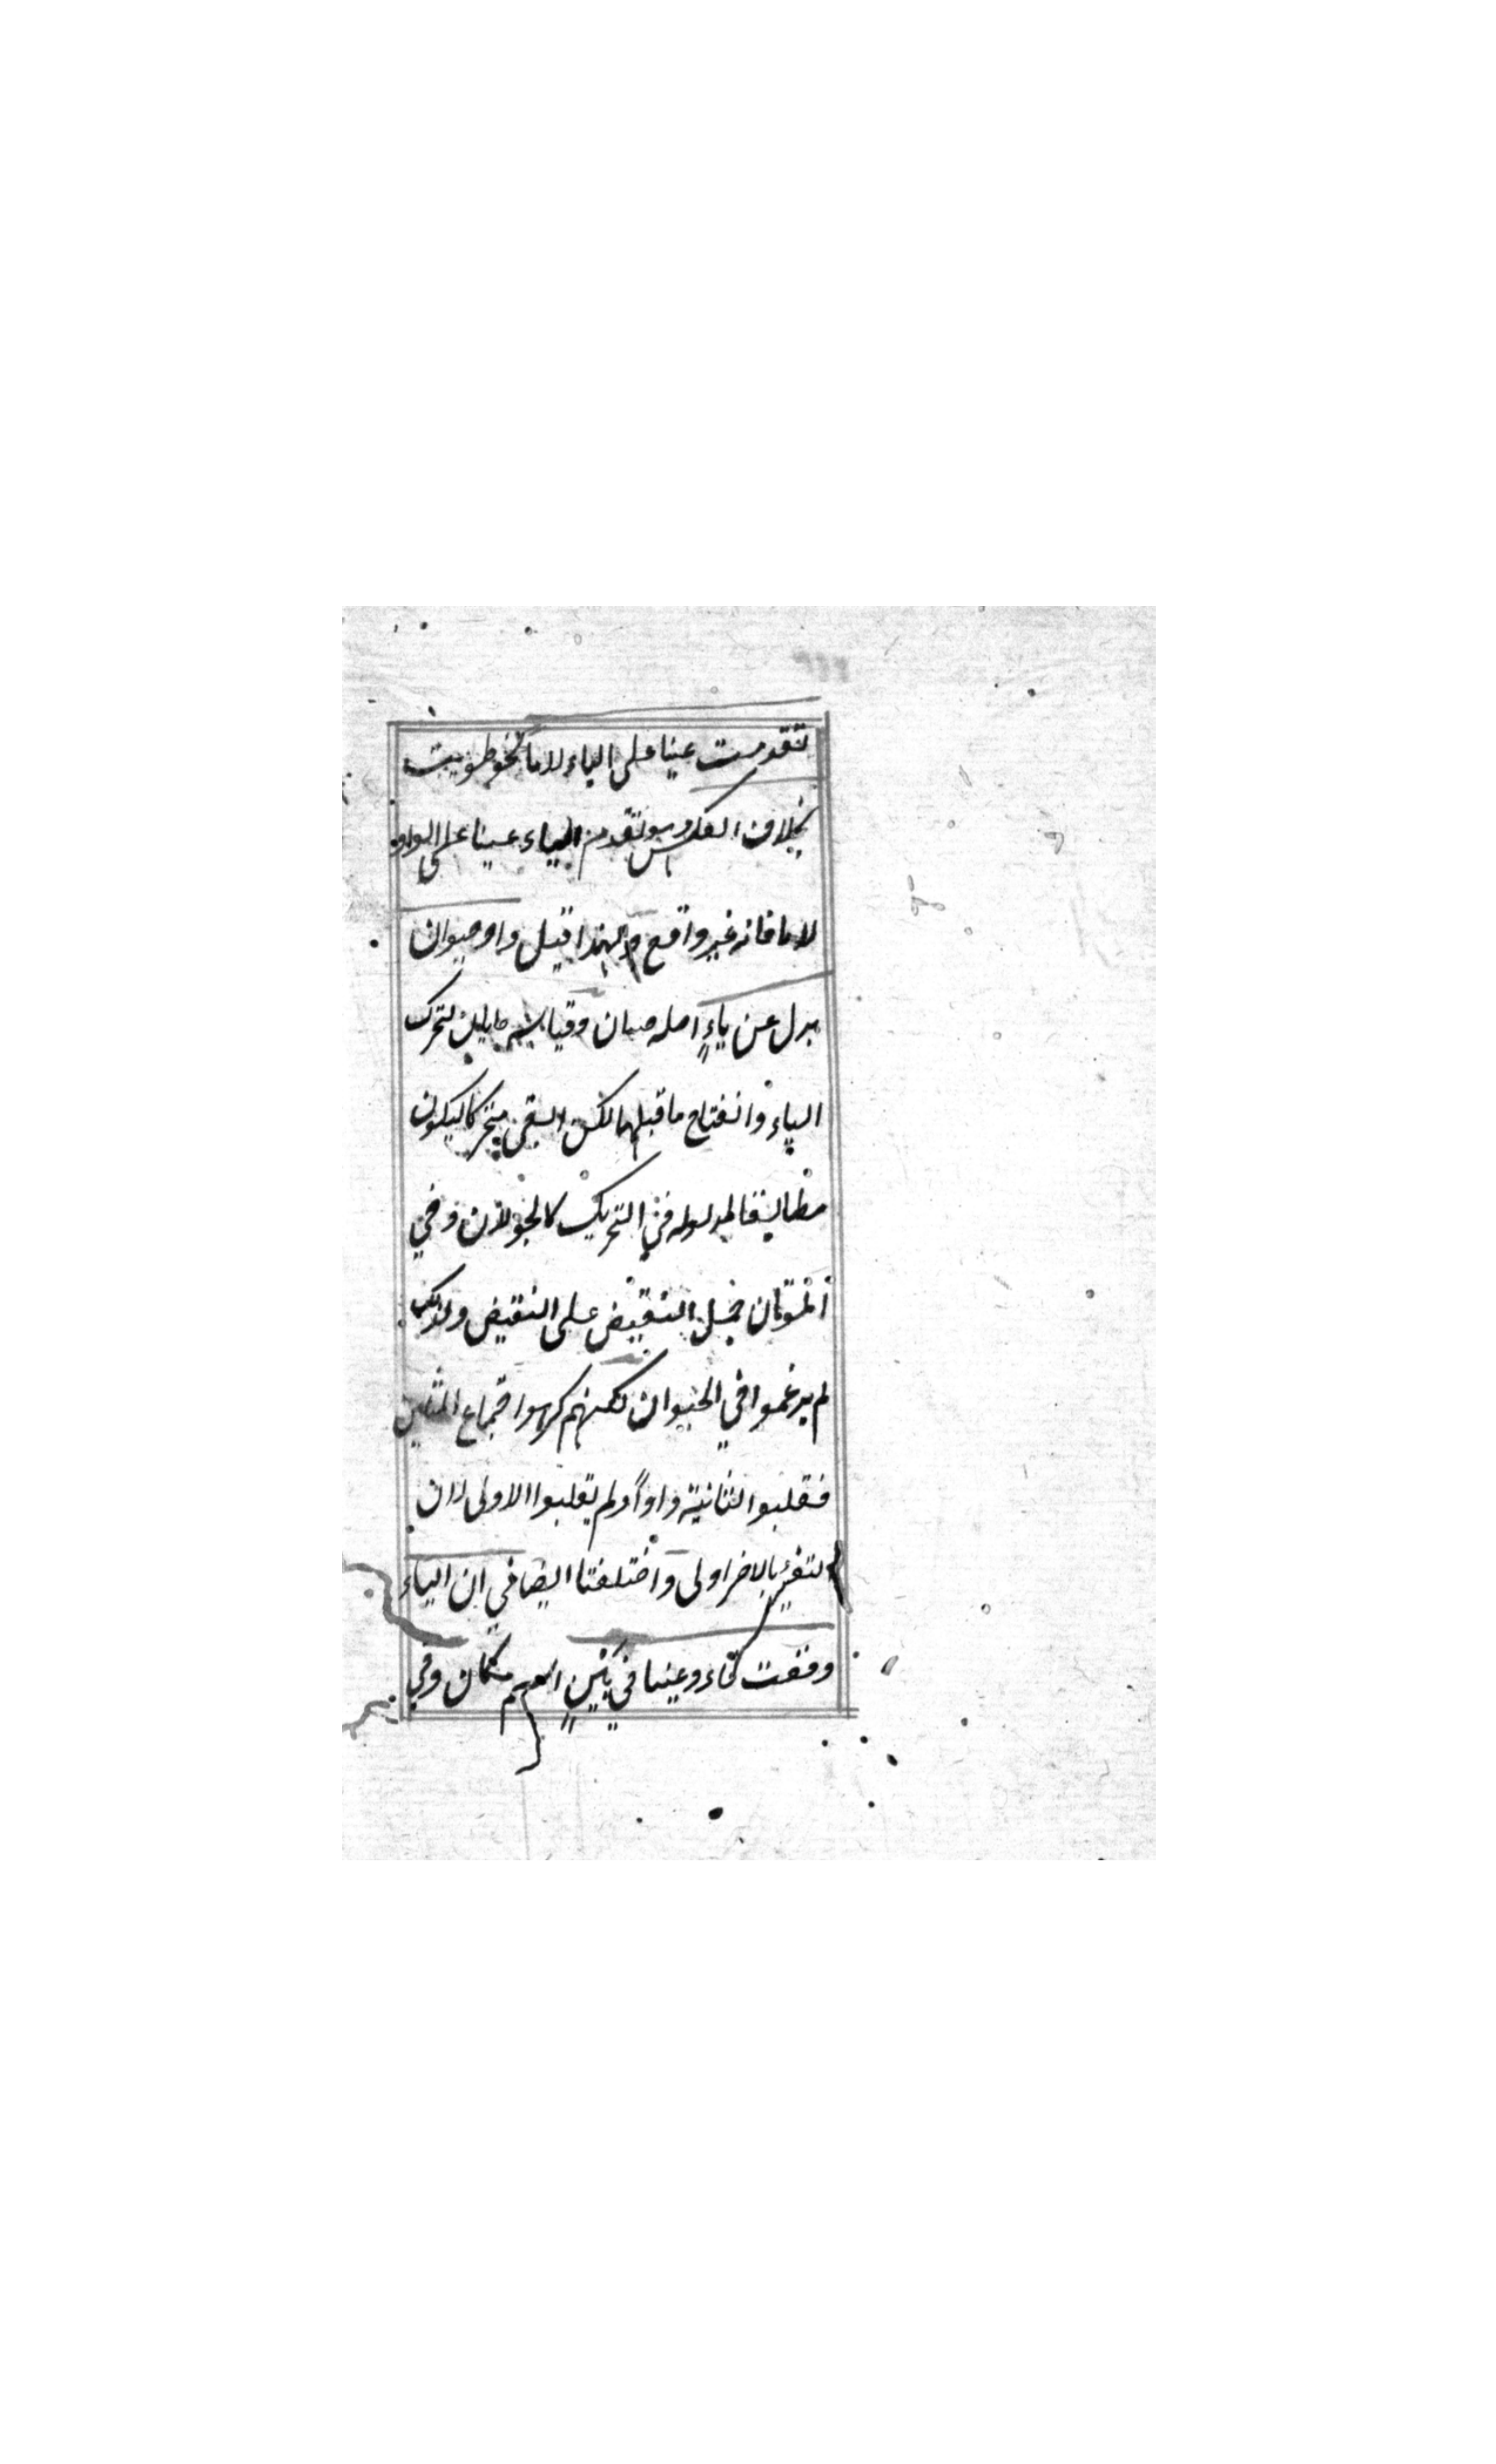 تقدمت عينا على الياء لاما نحو طويت
بخلاف العكس وهو تقدم الياء عينا على الواو
لاما فانه غير واقع ولهذا قيل واو حيوان
بدل عن ياءٍ اصله حييان وقياسه حايان لتحرك
الياء وانفتاح ما قبلها لكن ابقى متحركا ليكون
مطابقا لمدلوله في التحريك كالجولان وفي
الموتان حمل النقيض على النقيض ولذلك
لم يدغموا في الحيوان لكنهم كرهوا اجتماع المثلين
فقلبوا الثانية واوًا ولم يقلبوا الاولى لان
التغير بالاخر اولى واختلفتا ايضا في ان الياء
وقعت فاء وعينا في يَيْنٍ اسم مكان وفي